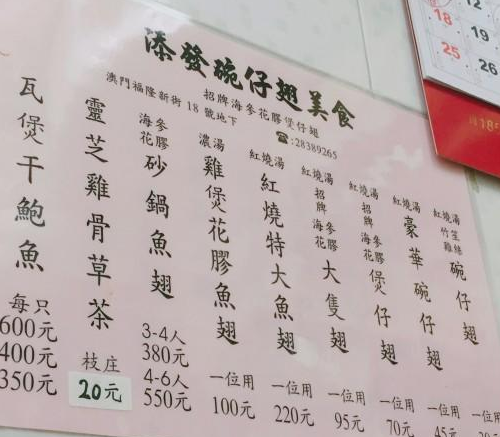 添發碗仔翅美食
招牌海參花膠煲仔翅
澳門福隆新街18號地下
☎:28389265
紅燒湯 竹笙雞絲 碗仔翅
紅燒湯 豪華碗仔翅 45元
紅燒湯 招牌海參花膠煲仔翅 一位用 70元
紅燒湯 招牌海參花膠大隻翅 一位用 95元
紅燒湯 紅燒特大魚翅 一位用 220元
濃湯 雞煲花膠魚翅 一位用 100元
海參花膠 砂鍋魚翅 3-4人 380元 4-6人 550元
靈芝雞骨草茶 枝庄 20元
瓦煲干鮑魚 每只 600元 400元 350元
12
18
19
25
26